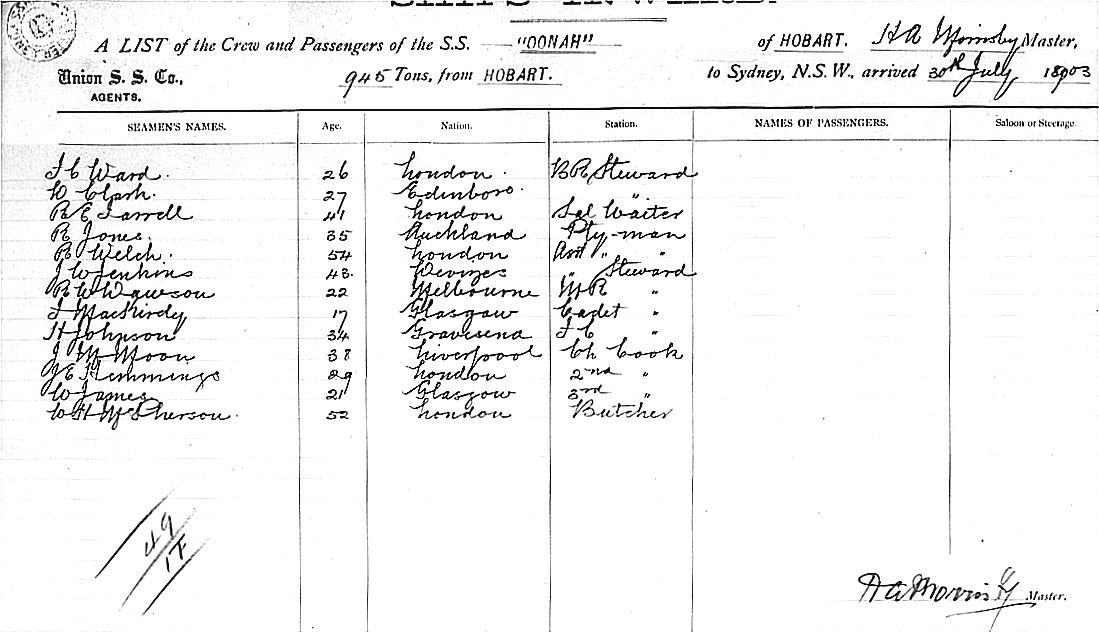 A LIST of the Crew and Passengers of the S.S. "OONAH" of HOBART. H A Master,
Union S. S. Co., 945 Tons, from HOBART. to Sydney, N.S.W., arrived 30th July 1903
AGENTS.
SEAMEN'S NAMES. Age. Nation. Station. NAMES OF PASSENGERS. Saloon or Steerage.
J C Ward. 26 London. BR Steward
W Clark. 27 Edinboro. "
R E Farrell 41 London Sal Waiter
R Jones. 35 Auckland Pty-man
R Welch. 54 London Asst " "
J W Jenkins 43. Devizes " Steward
R W Dawson 22 Melbourne M R "
J MacKirdy 17 Glasgow Cadet "
H Johnson 34 Gravesend F C "
J M Moon 38 Liverpool Ch Cook
J E Hemmings 29 London 2nd "
W James 21 Glasgow 3rd "
W H McPherson. 52 London Butcher
49
17
H A Morrisby Master.